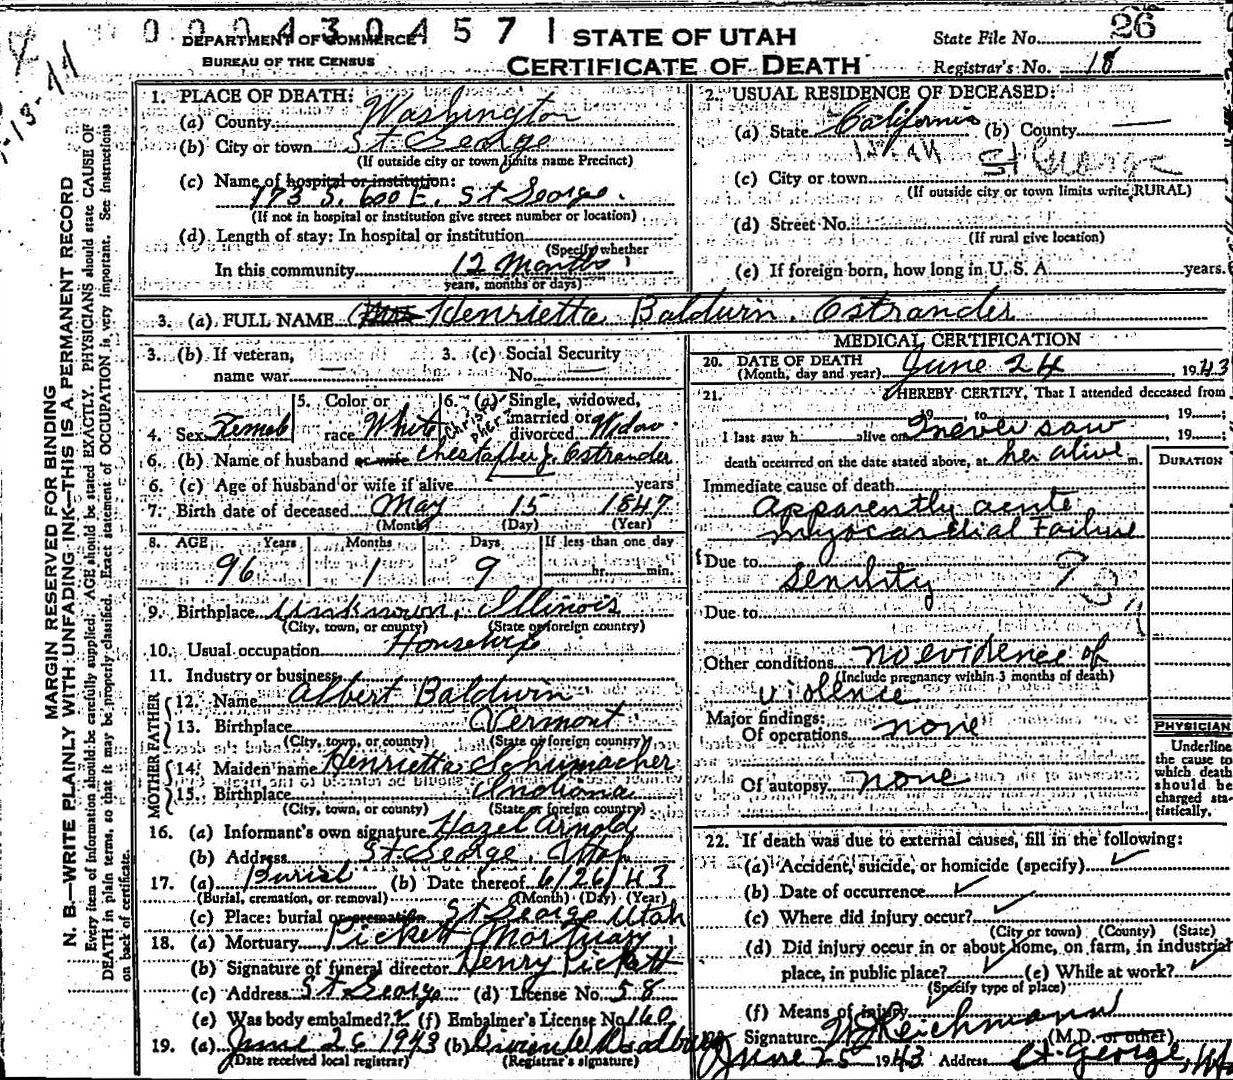 0004304571
DEPARTMENT OF COMMERCE
BUREAU OF THE CENSUS
STATE OF UTAH
CERTIFICATE OF DEATH
State File No. 26
Registrar's No. 18
MARGIN RESERVED FOR BINDING
N. B.—WRITE PLAINLY WITH UNFADING INK—THIS IS A PERMANENT RECORD
Every item of information should be carefully supplied. AGE should be stated EXACTLY. PHYSICIANS should state CAUSE OF
DEATH in plain terms, so that it may be properly classified. Exact statement of OCCUPATION is very important. See instructions
on back of certificate.
1. PLACE OF DEATH:
(a) County Washington
(b) City or town St George
(If outside city or town limits name Precinct)
(c) Name of hospital or institution:
193 S. 600 E. St George.
(If not in hospital or institution give street number or location)
(d) Length of stay: In hospital or institution
(Specify whether
In this community 12 Months
years, months or days)
2. USUAL RESIDENCE OF DECEASED:
(a) State California (b) County —
Utah St George
(c) City or town
(If outside city or town limits write RURAL)
(d) Street No.
(If rural give location)
(e) If foreign born, how long in U. S. A. years.
3. (a) FULL NAME Mrs Henrietta Baldwin Ostrander
3. (b) If veteran,
name war —
3. (c) Social Security
No. —
4. Sex Female
5. Color or
race White
6. (a) Single, widowed,
married or
divorced Widow
6. (b) Name of husband or wife Christopher J. Ostrander
6. (c) Age of husband or wife if alive years
7. Birth date of deceased May 15 1847
(Month) (Day) (Year)
8. AGE Years Months Days If less than one day
96 1 9 hr. min.
9. Birthplace Unknown, Illinois
(City, town, or county) (State or foreign country)
10. Usual occupation Housewife
11. Industry or business
FATHER
12. Name Albert Baldwin
13. Birthplace Vermont
(City, town, or county) (State or foreign country)
MOTHER
14. Maiden name Henrietta Schumacher
15. Birthplace Indiana
(City, town, or county) (State or foreign country)
16. (a) Informant's own signature Hazel Arnold
(b) Address St George, Utah
17. (a) Burial (b) Date thereof 6/26/43
(Burial, cremation, or removal) (Month) (Day) (Year)
(c) Place: burial or cremation St George Utah
18. (a) Mortuary Pickett Mortuary
(b) Signature of funeral director Henry Pickett
(c) Address St George (d) License No. 58
(e) Was body embalmed? ✓ (f) Embalmer's License No. 160
19. (a) June 26 1943 (b)
(Date received local registrar) (Registrar's signature)
MEDICAL CERTIFICATION
20. DATE OF DEATH
(Month, day and year) June 24, 1943
21. I HEREBY CERTIFY, That I attended deceased from
, 19 , to , 19 ;
I last saw h alive on I never saw , 19 ;
death occurred on the date stated above, at her alive m.
DURATION
Immediate cause of death
apparently acute
myocardial Failure
Due to
senility
Due to
Other conditions no evidence of
(Include pregnancy within 3 months of death)
violence
Major findings:
Of operations none
Of autopsy none
PHYSICIAN
Underline
the cause to
which death
should be
charged sta-
tistically.
22. If death was due to external causes, fill in the following:
(a) Accident, suicide, or homicide (specify) ✓
(b) Date of occurrence ✓
(c) Where did injury occur? ✓
(City or town) (County) (State)
(d) Did injury occur in or about home, on farm, in industrial
place, in public place? ✓ (e) While at work? ✓
(Specify type of place)
(f) Means of injury ✓
Signature W J Reichmann (M.D. or other)
June 25 1943 Address St. George, Ut